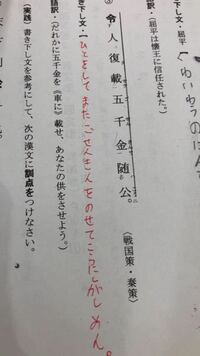 き下し文・屈平【
語訳・(屈平は懐王に信任された。)
③ 令人復載五千金随公。(戦国策・秦策)
き下し文・【ひとをしてまたごせんきんをのせてこうにしたがしめん。
語訳・(だれかに五千金を《車に》載せ、あなたの供をさせよう。)
【実践】書き下し文を参考にして、次の漢文に訓点をつけなさい。